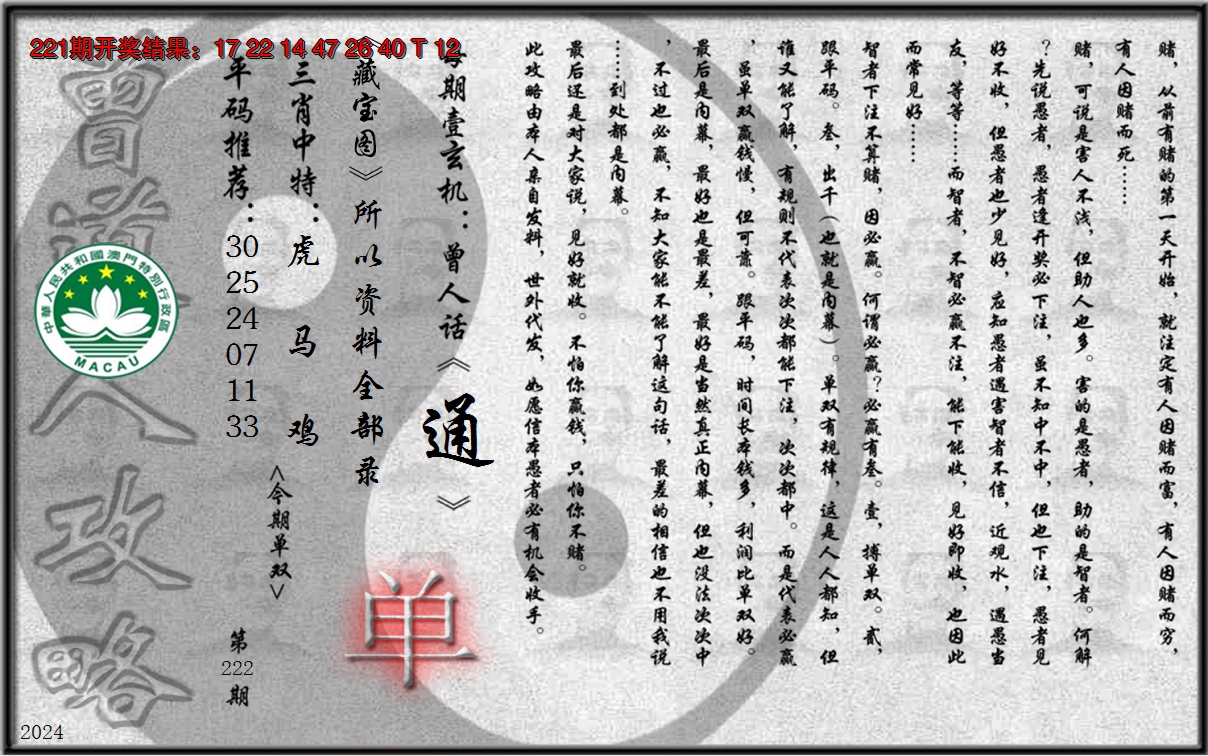 221期开奖结果：17 22 14 47 26 40 T 12
赌，从前有赌的第一天开始，就注定有人因赌而富，有人因赌而穷，
有人因赌而死……
赌，可说是害人不浅，但助人也多。害的是愚者，助的是智者。何解
？先说愚者，愚者逢开奖必下注，虽不知中不中，但也下注，愚者见
好不收，但愚者也少见好，应知愚者遇害智者不信，近观水，遇愚当
友，等等……而智者，不智必赢不注，能下能收，见好即收，也因此
而常见好……
智者下注不算赌，因必赢。何谓必赢？必赢有叁。壹，搏单双。贰，
跟平码。叁，出千（也就是内幕）。单双有规律，这是人人都知，但
谁又能了解，有规则不代表次次都能下注，次次都中。而是代表必赢
，虽单双赢钱慢，但可靠。跟平码，时间长本钱多，利润比单双好。
最后是内幕，最好也是最差，最好是当然真正内幕，但也没法次次中
，不过也必赢，不知大家能不能了解这句话，最差的相信也不用我说
……到处都是内幕。
最后还是对大家说，见好就收。不怕你赢钱，只怕你不赌。
此攻略由本人亲自发料，世外代发，如愿信本愚者必有机会收手。
每期壹玄机：曾人话《通》
《藏宝图》所以资料全部录
单
三肖中特：虎 马 鸡
<今期单双>
平码推荐：
30
25
24
07
11
33
第
222
期
曾道人攻略
中華人民共和國澳門特別行政區
MACAU
2024